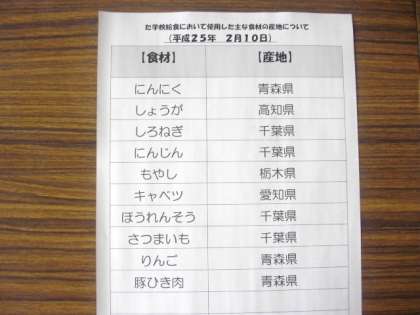 た学校給食において使用した主な食材の産地について
（平成２５年　２月１０日）
【食材】　【産地】
にんにく　青森県
しょうが　高知県
しろねぎ　千葉県
にんじん　千葉県
もやし　栃木県
キャベツ　愛知県
ほうれんそう　千葉県
さつまいも　千葉県
りんご　青森県
豚ひき肉　青森県